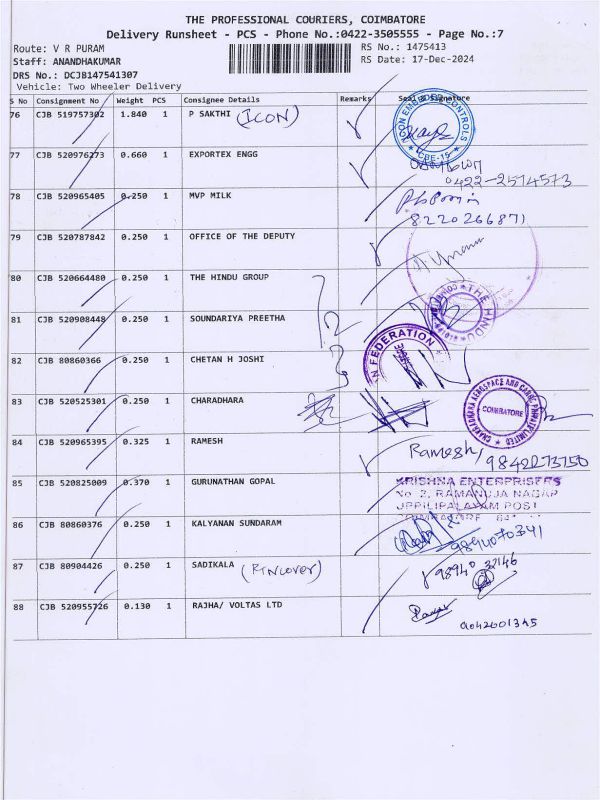 THE PROFESSIONAL COURIERS, COIMBATORE
Delivery Runsheet - PCS - Phone No.:0422-3505555 - Page No.:7
Route: V R PURAM
RS No.: 1475413
Staff: ANANDHAKUMAR
RS Date: 17-Dec-2024
DRS No.: DCJB147541307
Vehicle: Two Wheeler Delivery
S No Consignment No Weight PCS Consignee Details Remarks Seal & Signature
76 CJB 519757302 1.840 1 P SAKTHI (ICON)
CBE-15
77 CJB 520976273 0.660 1 EXPORTEX ENGG
0422-2574573
78 CJB 520965405 0.250 1 MVP MILK
8220266871
79 CJB 520787842 0.250 1 OFFICE OF THE DEPUTY
80 CJB 520664480 0.250 1 THE HINDU GROUP
THE HINDU
81 CJB 520908448 0.250 1 SOUNDARIYA PREETHA
82 CJB 80860366 0.250 1 CHETAN H JOSHI
FEDERATION
83 CJB 520525301 0.250 1 CHARADHARA
COIMBATORE
84 CJB 520965395 0.325 1 RAMESH
Ramesh,
9842273750
85 CJB 520825009 0.370 1 GURUNATHAN GOPAL
KRISHNA ENTERPRISES
No 2, RAMANUJA NAGAR
UPPILIPALAYAM POST
86 CJB 80860376 0.250 1 KALYANAN SUNDARAM
9894070341
87 CJB 80904426 0.250 1 SADIKALA
98940 32146
88 CJB 520955726 0.130 1 RAJHA/ VOLTAS LTD